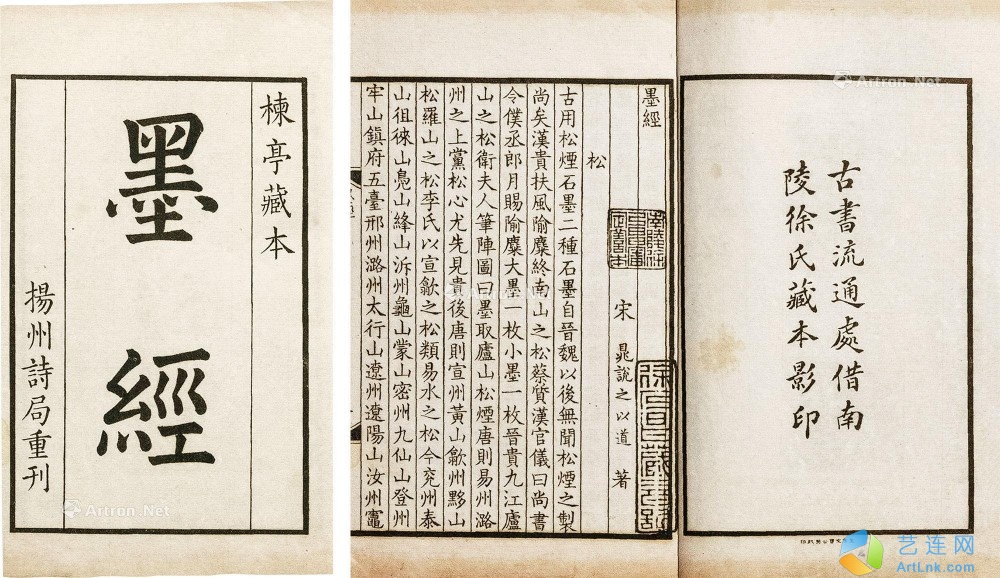 楝亭藏本
墨經
揚州詩局重刊
古書流通處借南
陵徐氏藏本影印
墨經
宋 晁說之以道 著
松
古用松煙石墨二種石墨自晉魏以後無聞松煙之製
尚矣漢貴扶風隃麋終南山之松蔡質漢官儀曰尚書
令僕丞郎月賜隃麋大墨一枚小墨一枚晉貴九江廬
山之松衛夫人筆陣圖曰墨取廬山松煙唐則易州潞
州之上黨松心尤先見貴後唐則宣州黃山歙州黟山
松羅山之松李氏以宣歙之松類易水之松今兗州泰
山徂徠山鳧山嶧山沂州龜山蒙山密州九仙山登州
牢山鎮府五臺邢州潞州太行山遼州遼陽山汝州竈
Artron.Net
Artron.Net
艺连网
ArtLnk.com